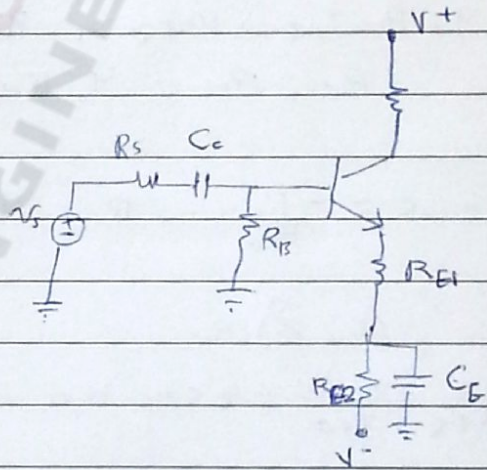 V+
Rs Cc
Vs
RB
RE1
RE2 CE
V-
GINE